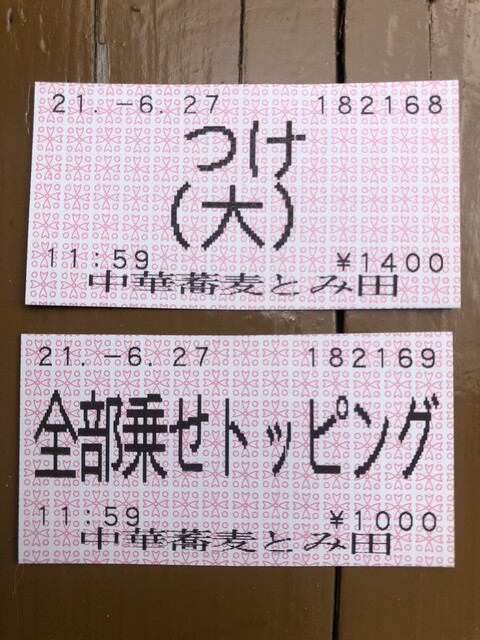 21.-6.27 182168
つけ
(大)
11:59 ¥1400
中華蕎麦とみ田
21.-6.27 182169
全部乗せトッピング
11:59 ¥1000
中華蕎麦とみ田